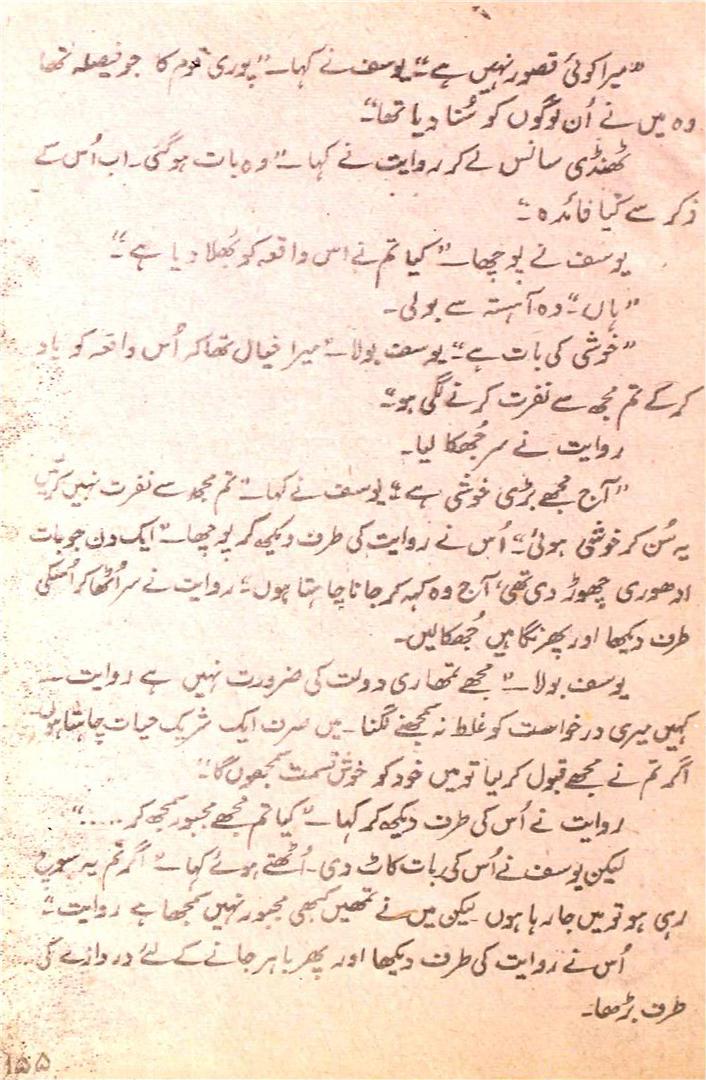 "میرا کوئی قصور نہیں ہے" یوسف نے کہا۔ "پوری قوم کا جو فیصلہ تھا
وہ میں نے اُن لوگوں کو سُنا دیا تھا"۔
ٹھنڈی سانس لے کر روایت نے کہا۔ "وہ بات ہو گئی۔ اب اُس کے
ذکر سے کیا فائدہ"۔
یوسف نے پوچھا۔ "کیا تم نے اس واقعہ کو بُھلا دیا ہے"۔
"ہاں"۔ وہ آہستہ سے بولی۔
"خوشی کی بات ہے"۔ یوسف بولا۔ "میرا خیال تھا کہ اُس واقعہ کو یاد
کر کے تم مجھ سے نفرت کرنے لگی ہو"۔
روایت نے سر جُھکا لیا۔
"آج مجھے بڑی خوشی ہے"۔ یوسف نے کہا۔ "تم مجھ سے نفرت نہیں کرتیں
یہ سُن کر خوشی ہوئی"۔ اُس نے روایت کی طرف دیکھ کر پوچھا۔ "ایک دن جو بات
ادھوری چھوڑ دی تھی، آج وہ کہہ کر جانا چاہتا ہوں"۔ روایت نے سر اُٹھا کر اُسکی
طرف دیکھا اور پھر نگاہیں جُھکا لیں۔
یوسف بولا۔ "مجھے تمھاری دولت کی ضرورت نہیں ہے روایت ۔۔
کہیں میری درخواست کو غلط نہ سمجھنے لگنا۔ میں صرف ایک شریک حیات چاہتا ہوں۔
اگر تم نے مجھے قبول کر لیا تو میں خود کو خوش قسمت سمجھوں گا"۔
روایت نے اُس کی طرف دیکھ کر کہا۔ "کیا تم مجھے مجبور سمجھ کر ....."
لیکن یوسف نے اُس کی بات کاٹ دی۔ اُٹھتے ہوئے کہا۔ "اگر تم یہ سوچ
رہی ہو تو میں جا رہا ہوں لیکن میں نے تمھیں کبھی مجبور نہیں سمجھا ہے روایت"۔
اُس نے روایت کی طرف دیکھا اور پھر باہر جانے کے لئے دروازے کی
طرف بڑھا۔
۱۵۵